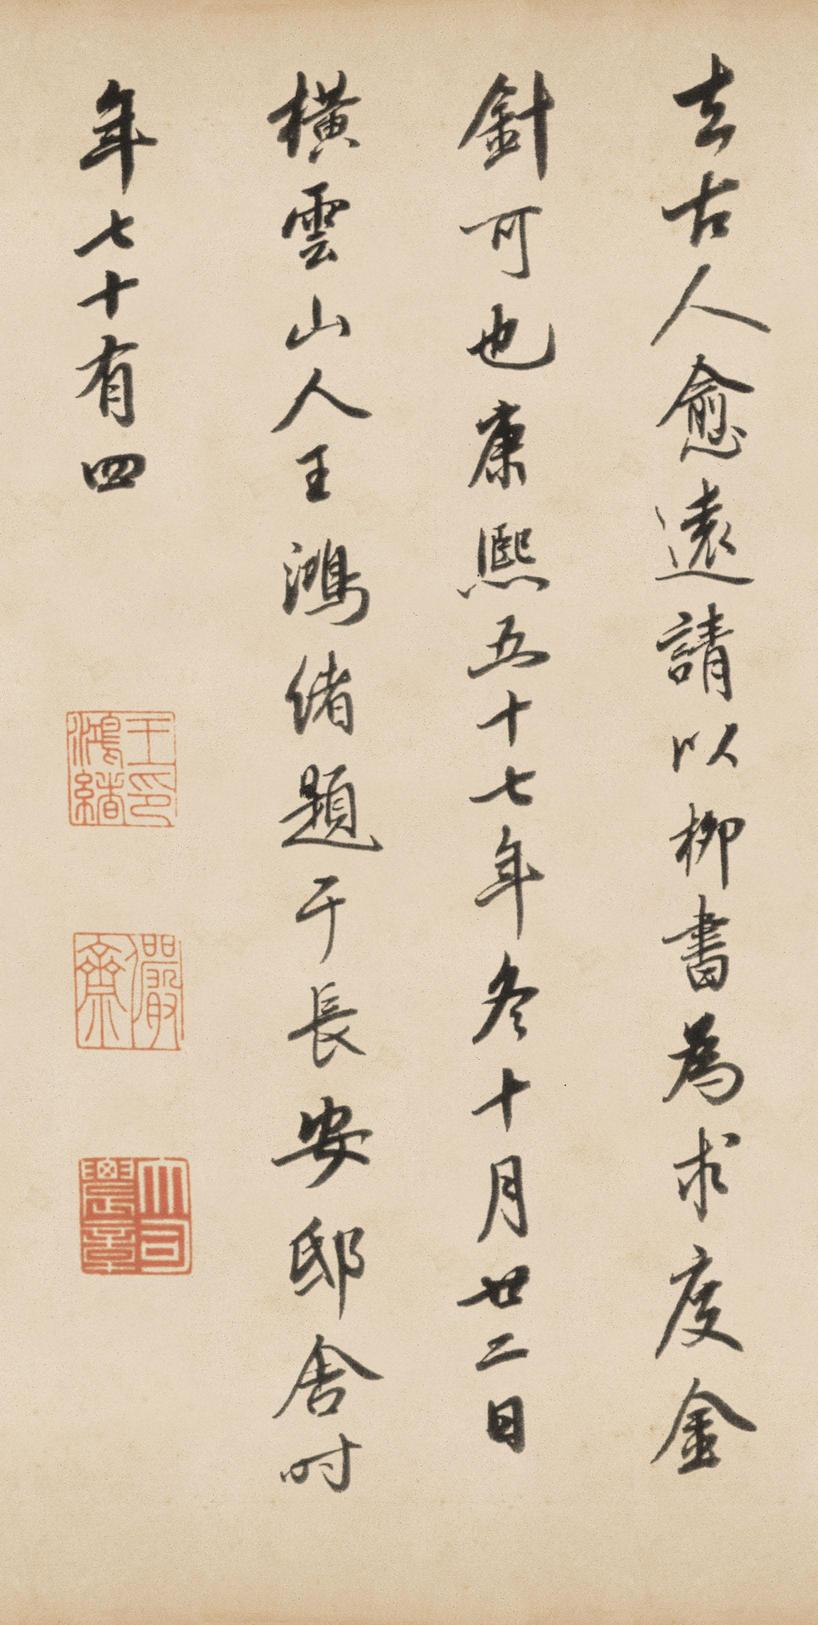 去古人愈遠請以柳書為求度金
針可也康熙五十七年冬十月廿二日
橫雲山人王鴻緒題于長安邸舍时
年七十有四
王鴻緒印
儼齋
大司農章